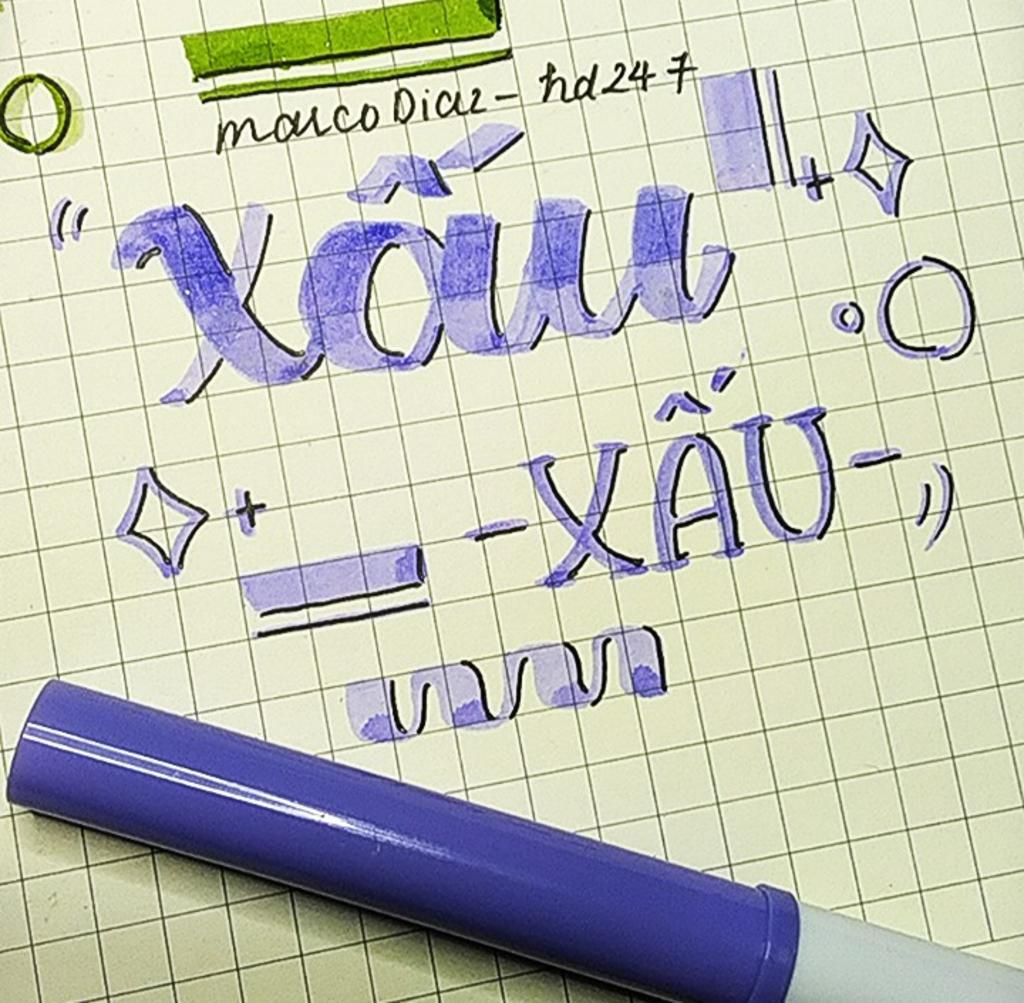 Marco Diaz - hd247
"Xấu
-XẤU-"